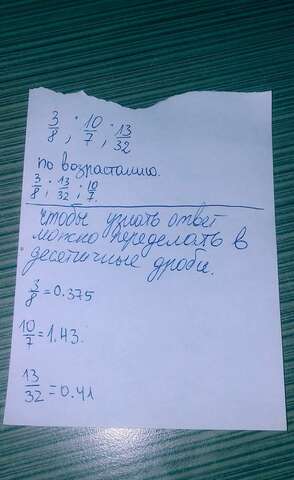 3/8 ; 10/7 ; 13/32
по возрастанию.
3/8 ; 13/32 ; 10/7.
чтобы узнать ответ
можно переделать в
десетичные дроби.
3/8 = 0.375
10/7 = 1.43.
13/32 = 0.41